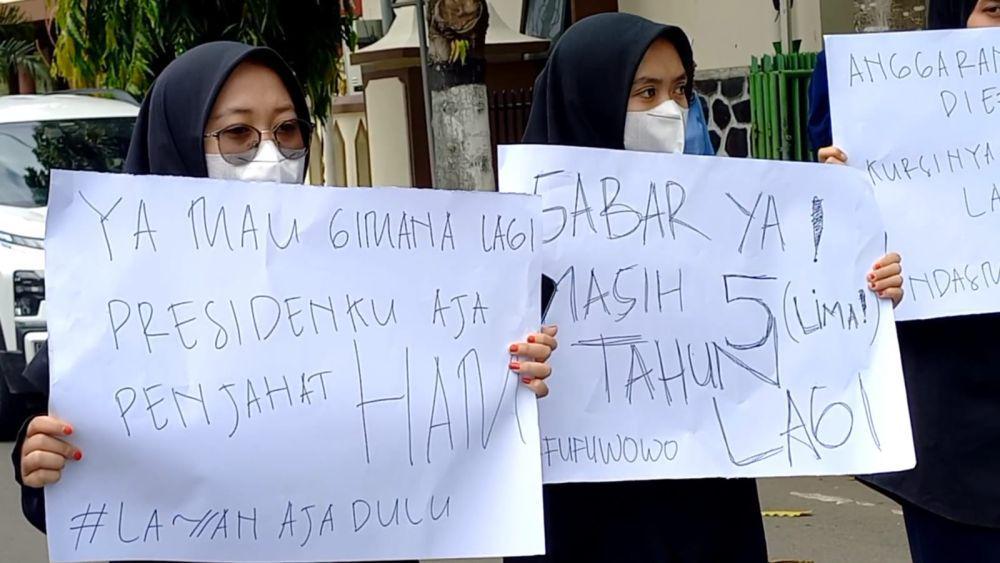 YA MAU GIMANA LAGI
PRESIDENKU AJA
PENJAHAT HAM
#LAWAN AJA DULU
SABAR YA!
MASIH 5 (LIMA!)
TAHUN LAGI
FUFUWOWO
ANGGARAN
DIE
KURSINYA
LA
NDASM